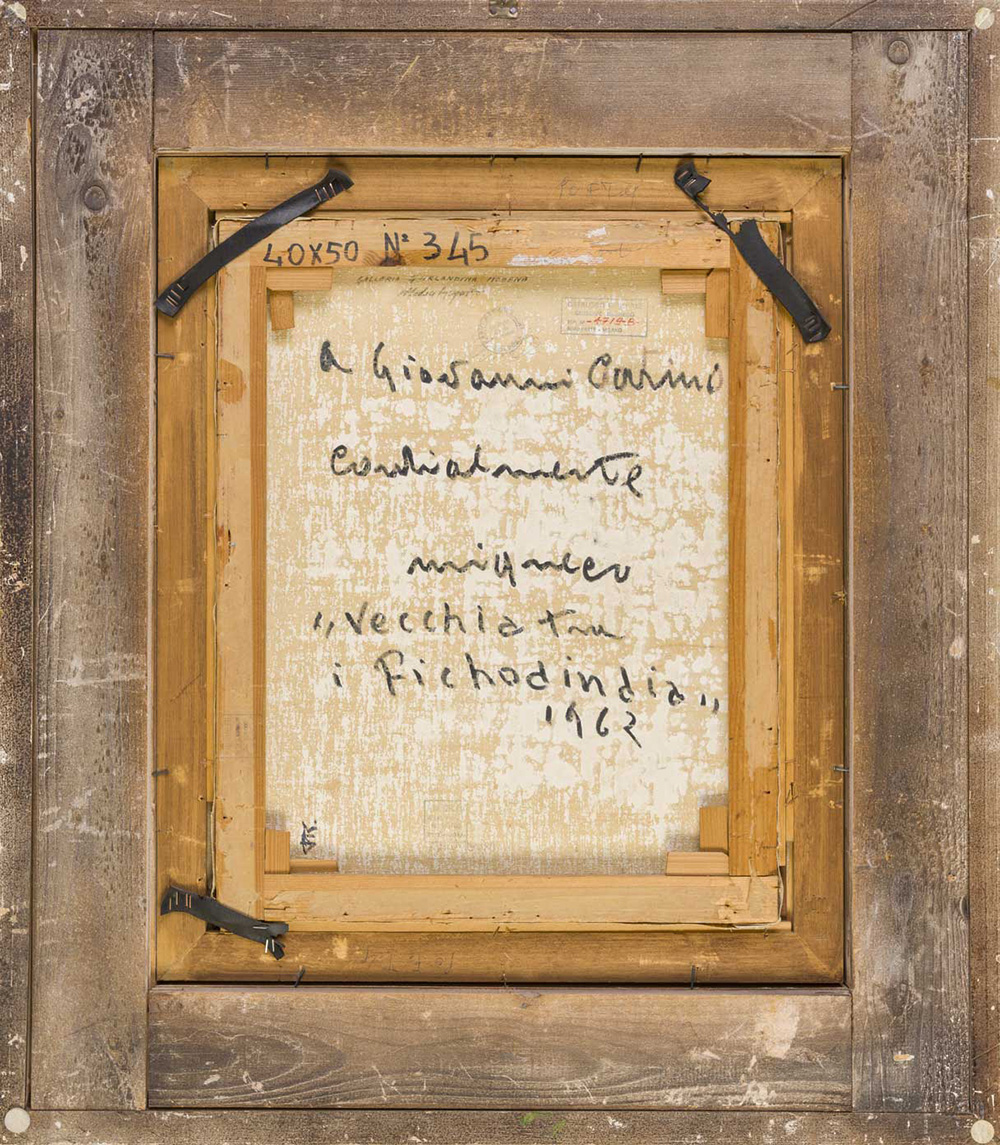 40X50 Nº 345
GALLERIA GHIRLANDINA MODENA
A Giovanni Carino
cordialmente
migneco
"Vecchia tra
i Fichodindia"
1962